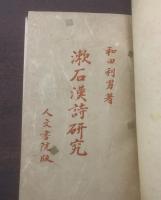 和田利男著
漱石漢詩研究
人文書院版